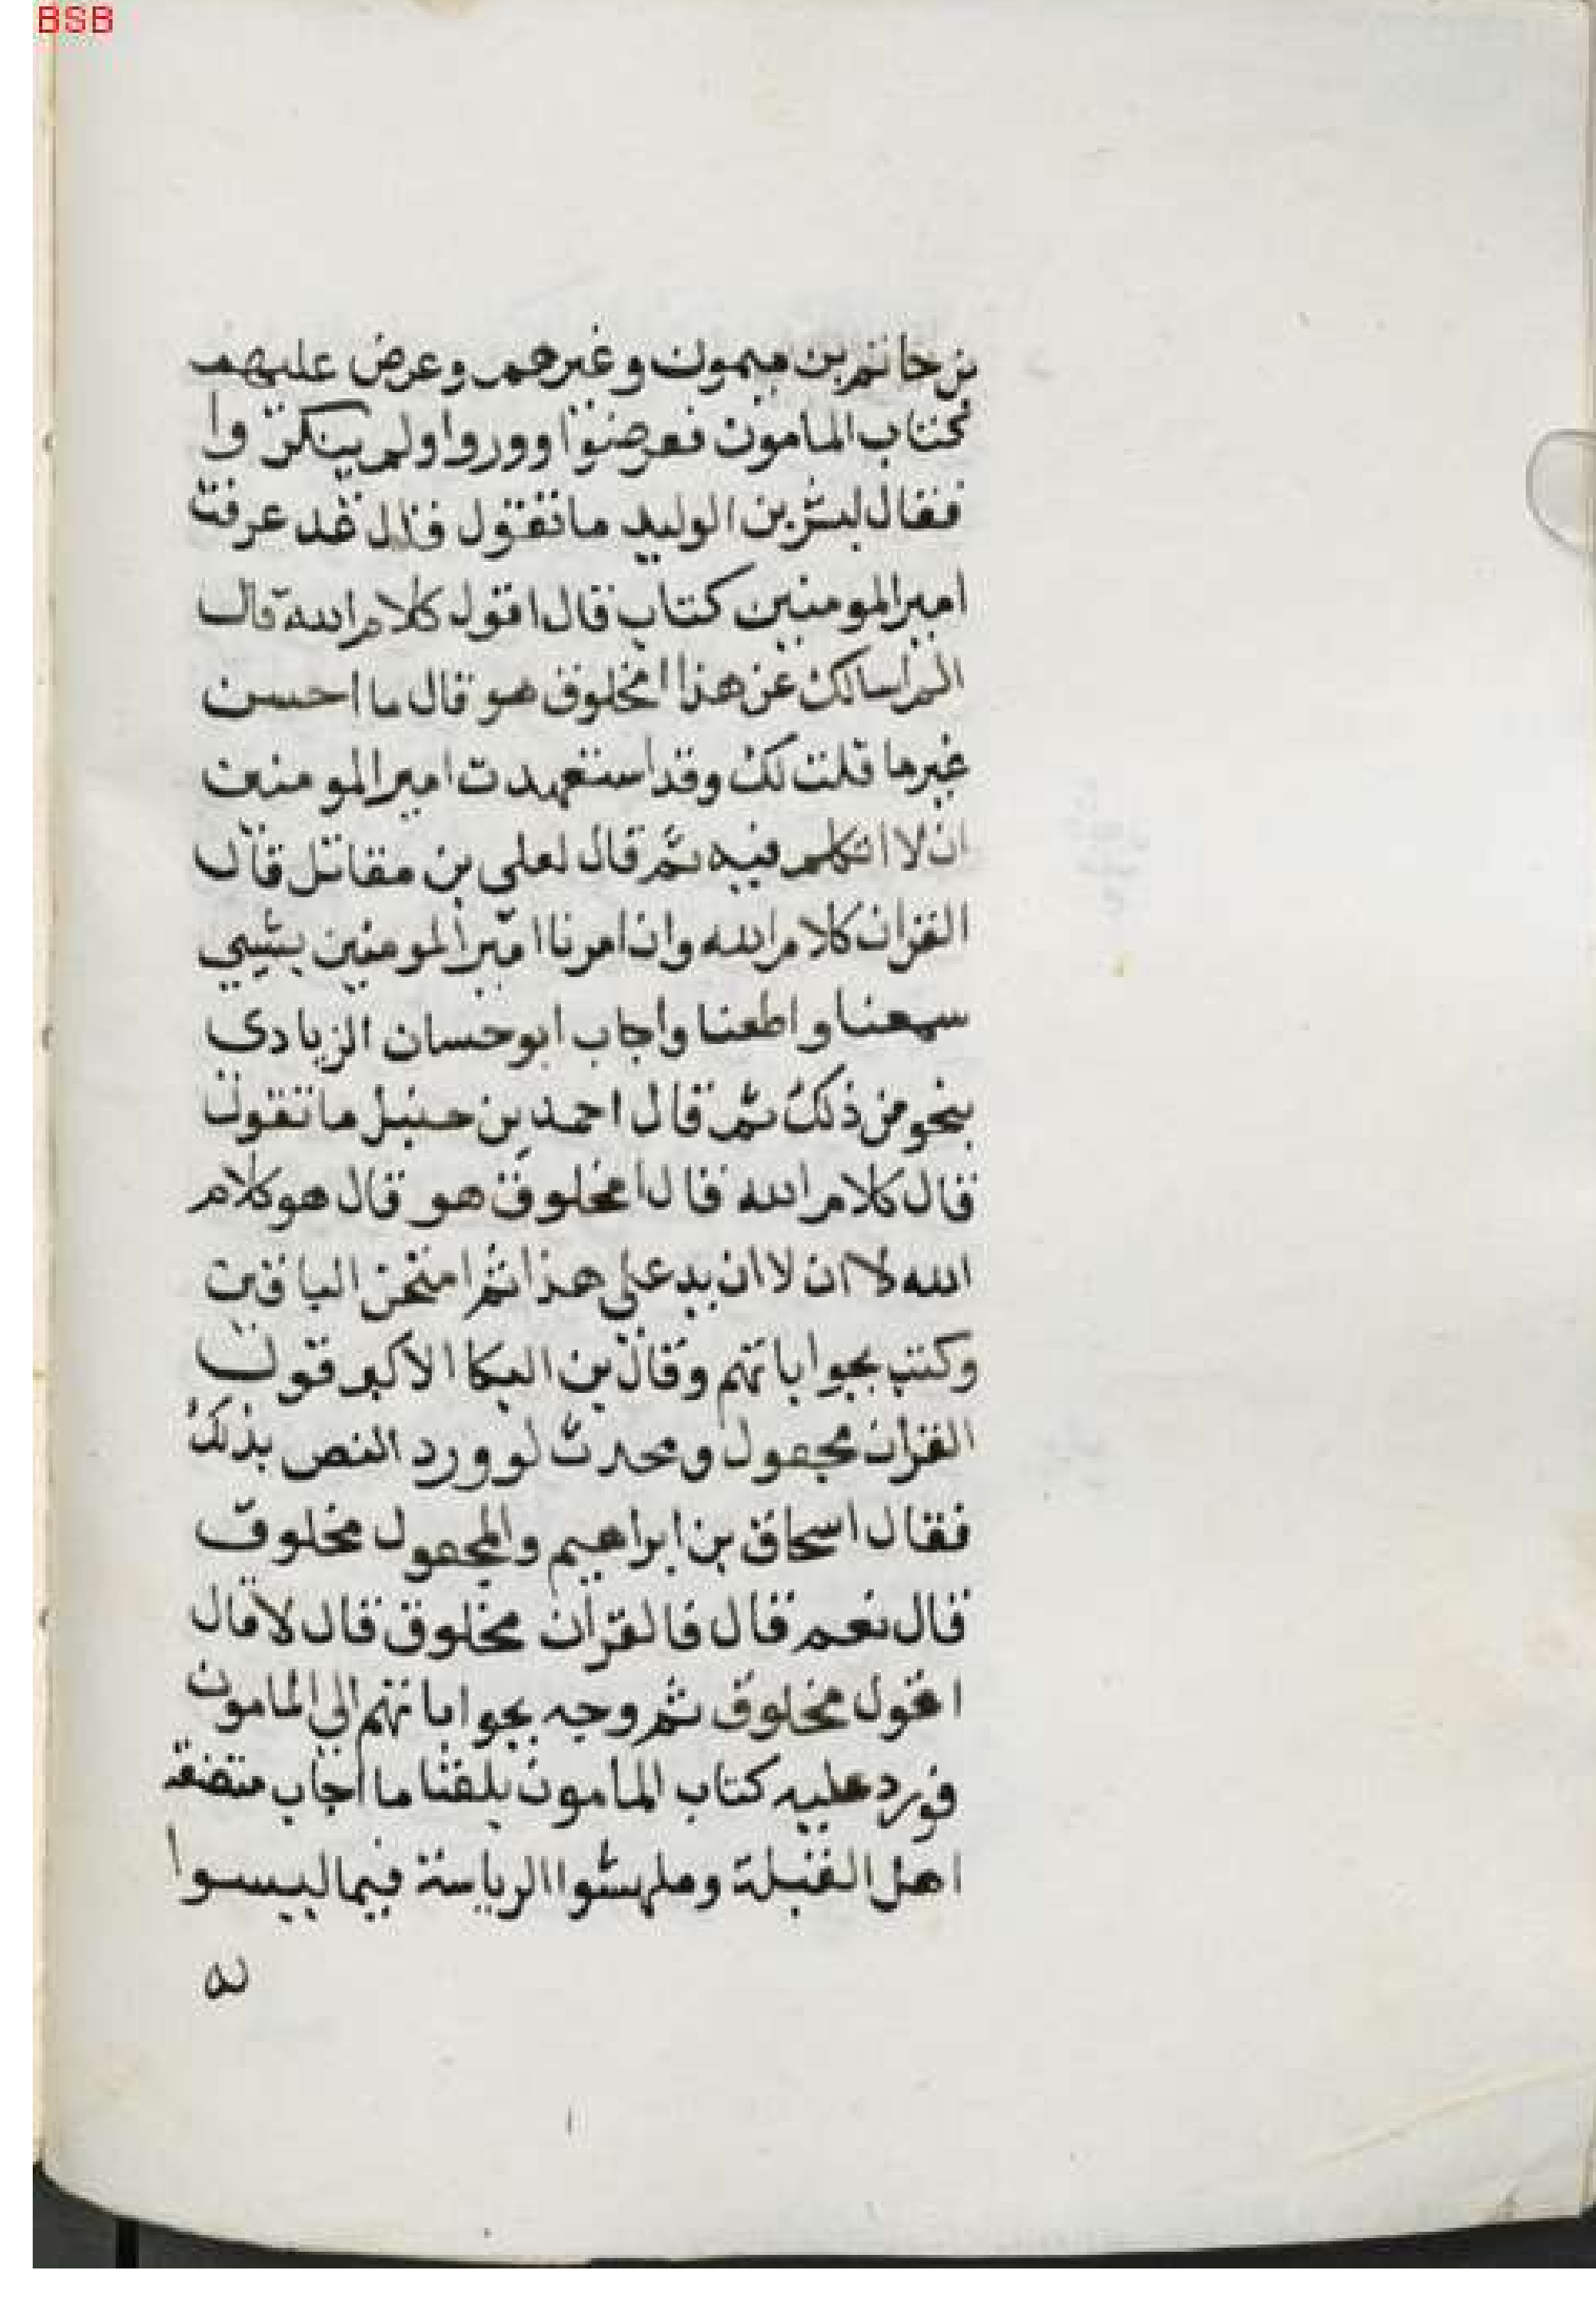 BSB
بن حاتم بن ميمون وغيرهم وعرض عليهم
كتاب المامون فعرضوا ووروا ولم ينكروا
فقال لبشر بن الوليد ما تقول فقال قد عرفت
امير المومنين كتاب قال اقول كلام الله قال
الم اسالك عن هذا امخلوق هو قال ما احسن
غير ما قلت لك وقد استعهدت امير المومنين
ان لا اتكلم فيه ثم قال لعلي بن مقاتل قال
القران كلام الله وان امرنا امير المومنين بشيي
سمعنا واطعنا واجاب ابو حسان الزيادى
بنحو من ذلك ثم قال احمد بن حنبل ما تقول
قال كلام الله قال امخلوق هو قال هو كلام
الله لا ان لا ان يد على هذا ثم امتحن الباقين
وكتب بجواباتهم وقال بن البكا الاكبر قول
القران مجعول ومحدث لو ورد النص بذلك
فقال اسحاق بن ابراهيم والمجعول مخلوق
قال نعم قال فالقران مخلوق قال لا قال
اقول مخلوق ثم وجه بجواباتهم الى المامون
فورد عليه كتاب المامون بلغنا ما اجاب متصنعه
اهل القبلة وملمسوا الرياسة فيما ليسوا
له